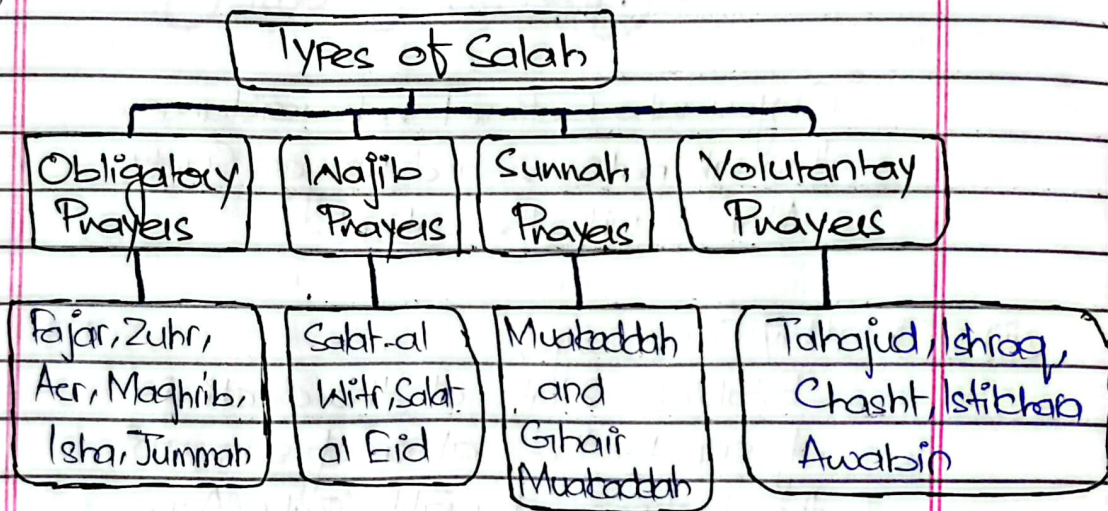 Types of Salah
Obligatory
Prayers
Wajib
Prayers
Sunnah
Prayers
Volutantay
Prayers
Fajar, Zuhr,
Acr, Maghrib,
Isha, Jummah
Salat-al
Witr, Salat
al Eid
Muakaddah
and
Ghair
Muakaddah
Tahajud, Ishraq,
Chasht, Istikhara
Awabin